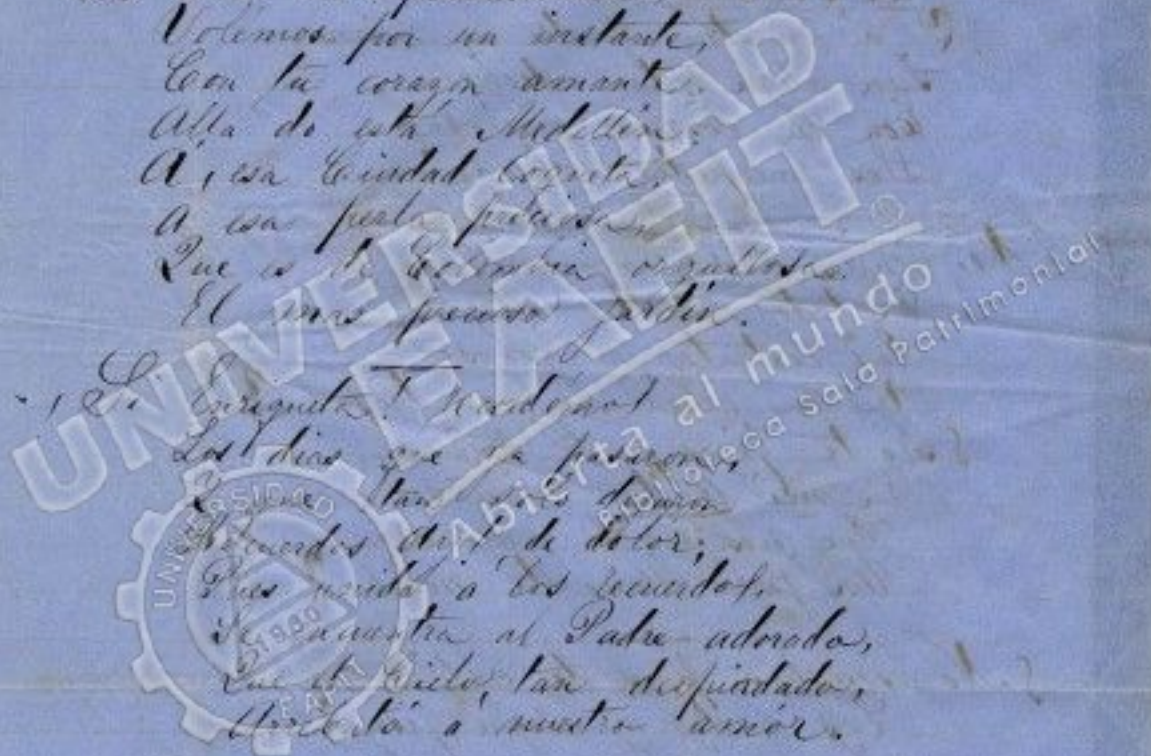 Volemos por un instante,
Con tu corazón amante
Alla do está Medellin
A, esa Ciudad Coqueta,
A esa perla preciosa,
Que es de Colombia orgullosa
El mas precioso jardin.
Si Enriqueta!
Los dias que ya pasaron,
Y que tan
Recuerdos de dolor;
Pues unida á los recuerdos,
Se encuentra al Padre adorado,
Que el Cielo, tan despiadado,
Arrebató á nuestro amor.
UNIVERSIDAD
EAFIT
Abierta al mundo
Biblioteca Sala Patrimonial
UNIVERSIDAD
1960
EAFIT